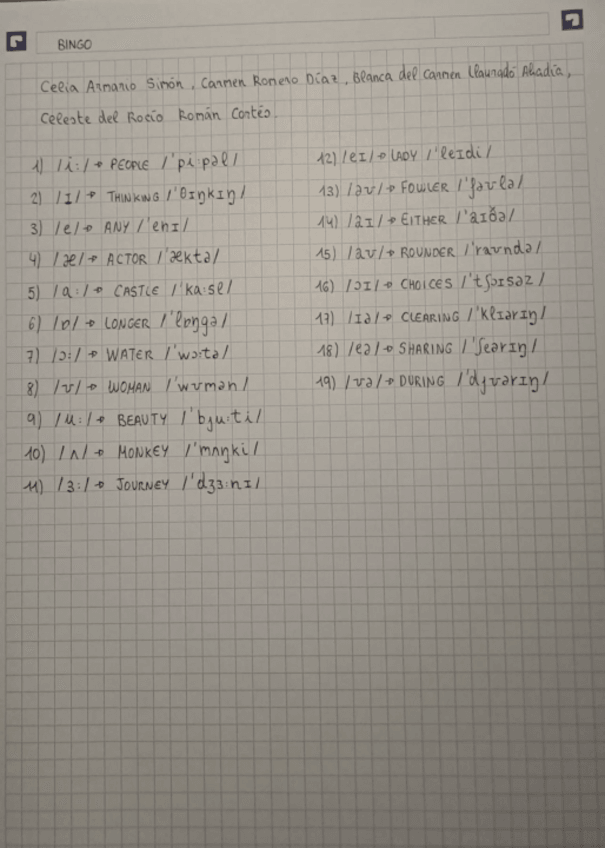 BINGO
Celia Armario Simón, Carmen Romero Díaz, Blanca del Carmen Llauradó Abadía,
Celeste del Rocío Román Cortés.
1) /i:/→ PEOPLE /'pi:pəl/
2) /ɪ/→ THINKING /'θɪŋkɪŋ/
3) /e/→ ANY /'enɪ/
4) /æ/→ ACTOR /'æktə/
5) /ɑ:/→ CASTLE /'kɑ:sel/
6) /ɒ/→ LONGER /'lɒngə/
7) /ɔ:/→ WATER /'wɔ:tə/
8) /ʊ/→ WOMAN /'wʊmən/
9) /u:/→ BEAUTY /'bju:ti/
10) /ʌ/→ MONKEY /'mʌŋki/
11) /ɜ:/→ JOURNEY /'dʒɜ:nɪ/
12) /eɪ/→ LADY /'leɪdi/
13) /əʊ/→ FOWLER /'fəʊlə/
14) /aɪ/→ EITHER /'aɪðə/
15) /aʊ/→ ROUNDER /'raʊndə/
16) /ɔɪ/→ CHOICES /'tʃɔɪsəz/
17) /ɪə/→ CLEARING /'klɪərɪŋ/
18) /eə/→ SHARING /'ʃeərɪŋ/
19) /ʊə/→ DURING /'djʊərɪŋ/